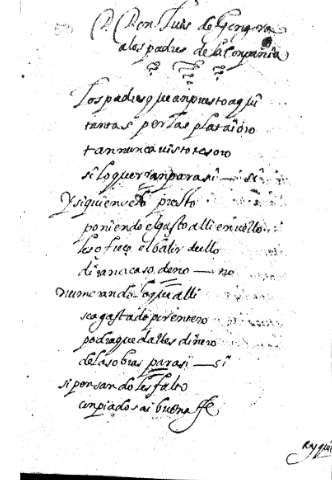 Don Luis de Gongora
a los padres de la Conpañia
Los padres que an puesto aqui
tantas perlas plata i oro
tan nunca visto tesoro
si lo querran para si — si
Y si quien esto presto
poniendo el gasto alli en vello
les o el dello
diran acaso de no — no
numerando lo que alli
se a gastado por entero
podra quedalles dinero
de las obras para si — si
si pensando les falto
en piados a i buena fe